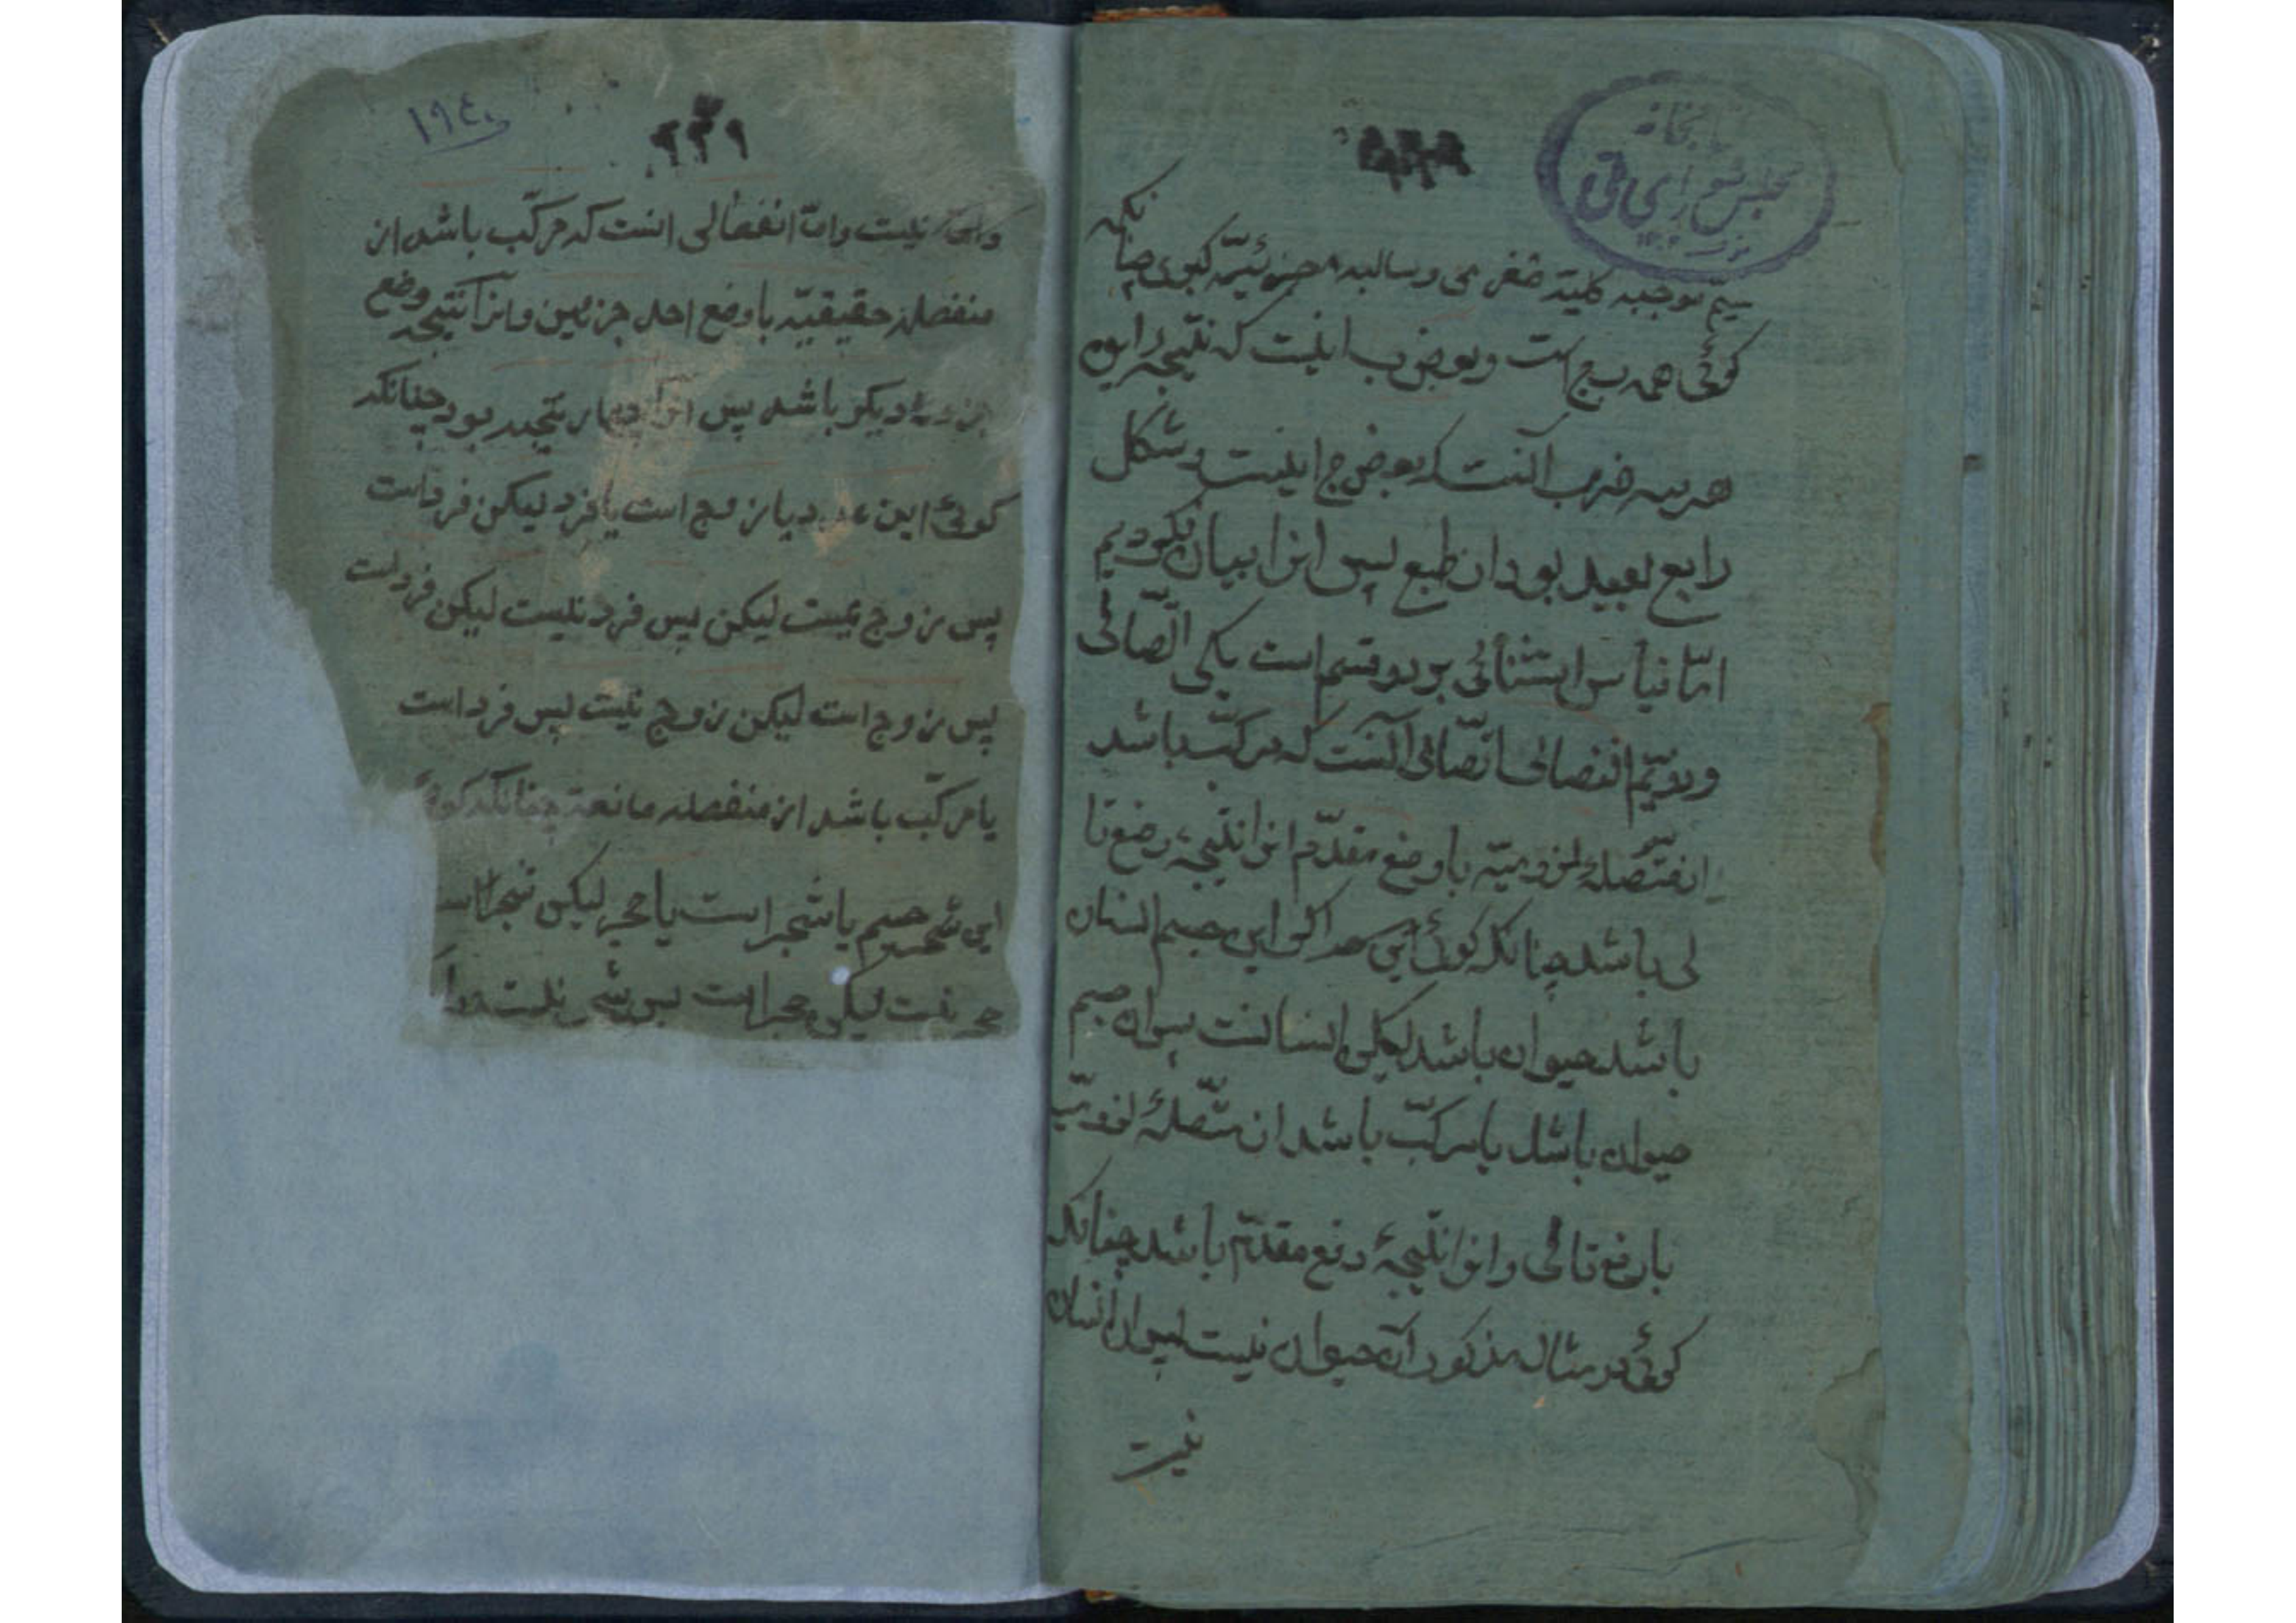 کتابخانه
مجلس شورای ملی
سیّم موجبه کلیّة صغری و سالبه جزئیّه کبری چنانکه
گوئی همه ب ج است و بعض ب ا نیست که نتیجه این
هر سه ضرب آنست که بعض ج ا نیست و شکل
رابع بعید بود از طبع پس انرا بیان نکردیم
امّا قیاس استثنائی بر دو قسم است یکی اتّصالی
و دویّم انفصالی اتّصالی آنست که مرکّب باشد
از متّصلهٔ لزومیّه با وضع مقدّم انرا نتیجهٔ وضع تا
لی باشد چنانکه گوئی این جسم انسان
باشد حیوان باشد لیکن انسانست پس این جسم
حیوان باشد یا مرکّب باشد از متّصلهٔ لزومیّه
با رفع تالی و انرا نتیجهٔ رفع مقدّم باشد چنانکه
گوئی در مثال مذکور حیوان نیست پس انسان
نیست
۱۹۴۰
۲۲۹
نیست وامّا انفصالی انست که مرکّب باشد از
منفصله حقیقیّه با وضع احد جزئین وانرا نتیجه وضع
دیگر باشد پس انرا چهار نتیجه بود چنانکه
گوئی این عدد یا زوج است یا فرد لیکن فرد است
پس زوج نیست لیکن پس فرد نیست لیکن فرد نیست
پس زوج است لیکن زوج نیست پس فرد است
یا مرکّب باشد از منفصله مانعة چنانکه گوئی
این جسم یا شجر است یا حجر لیکن شجر است
حجر نیست لیکن حجر است پس شجر نیست